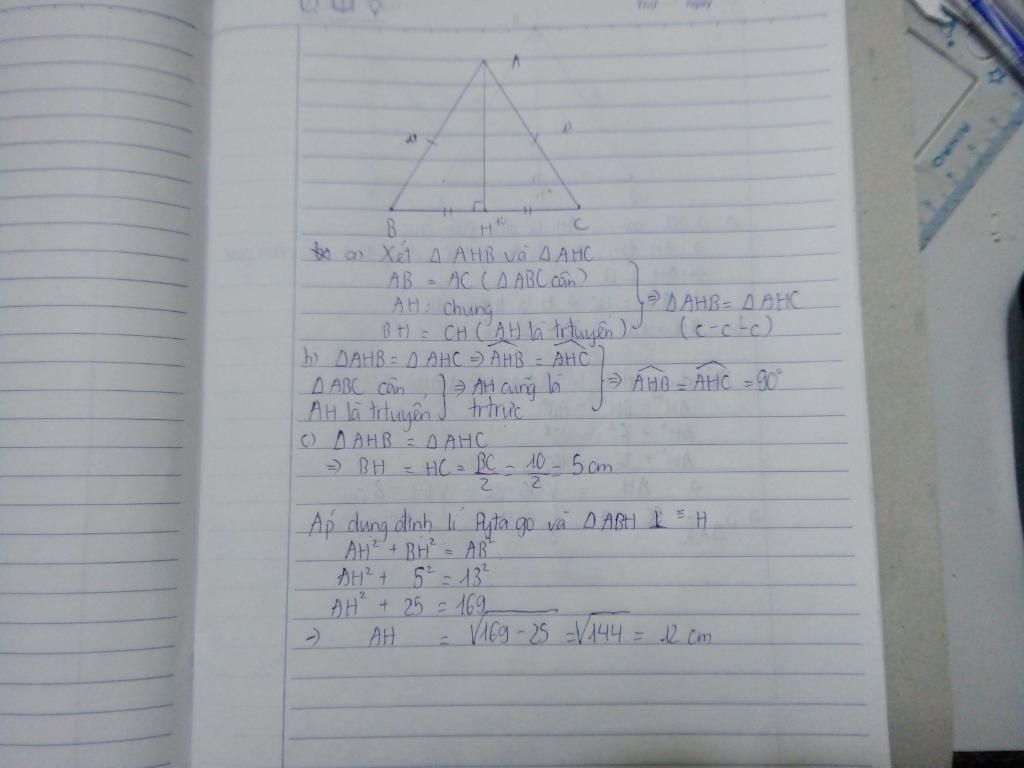 Thứ Ngày
A
B H 10 C
a) Xét Δ AHB và Δ AHC
AB = AC (Δ ABC cân)
AH : chung
BH = CH ( AH là trtuyến )
⇒ Δ AHB = Δ AHC
(c - c - c)
b) ΔAHB = Δ AHC ⇒ AHB = AHC
ΔABC cân, ⇒ AH cũng là ⇒ AHB = AHC = 90°
AH là trtuyến trtrực
c) Δ AHB = Δ AHC
⇒ BH = HC = BC/2 = 10/2 = 5 cm
Áp dụng định lí Pytago và Δ ABH ⊥ = H
AH² + BH² = AB²
AH² + 5² = 13²
AH² + 25 = 169
⇒ AH = √169 - 25 = √144 = 12 cm